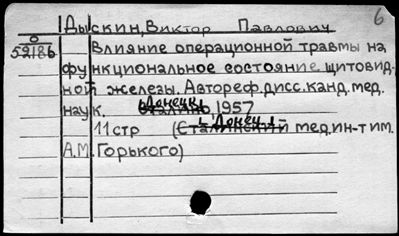 6
Дыскин, Виктор Павлович
0
52186
Влияние операционной травты на
функциональное состояние щитовид-
ной железы. Автореф. дисс. канд. мед.
наук. Сталино Донецк, 1957
11 стр (Сталинский Донец. мед. ин-т им.
А.М. Горького)